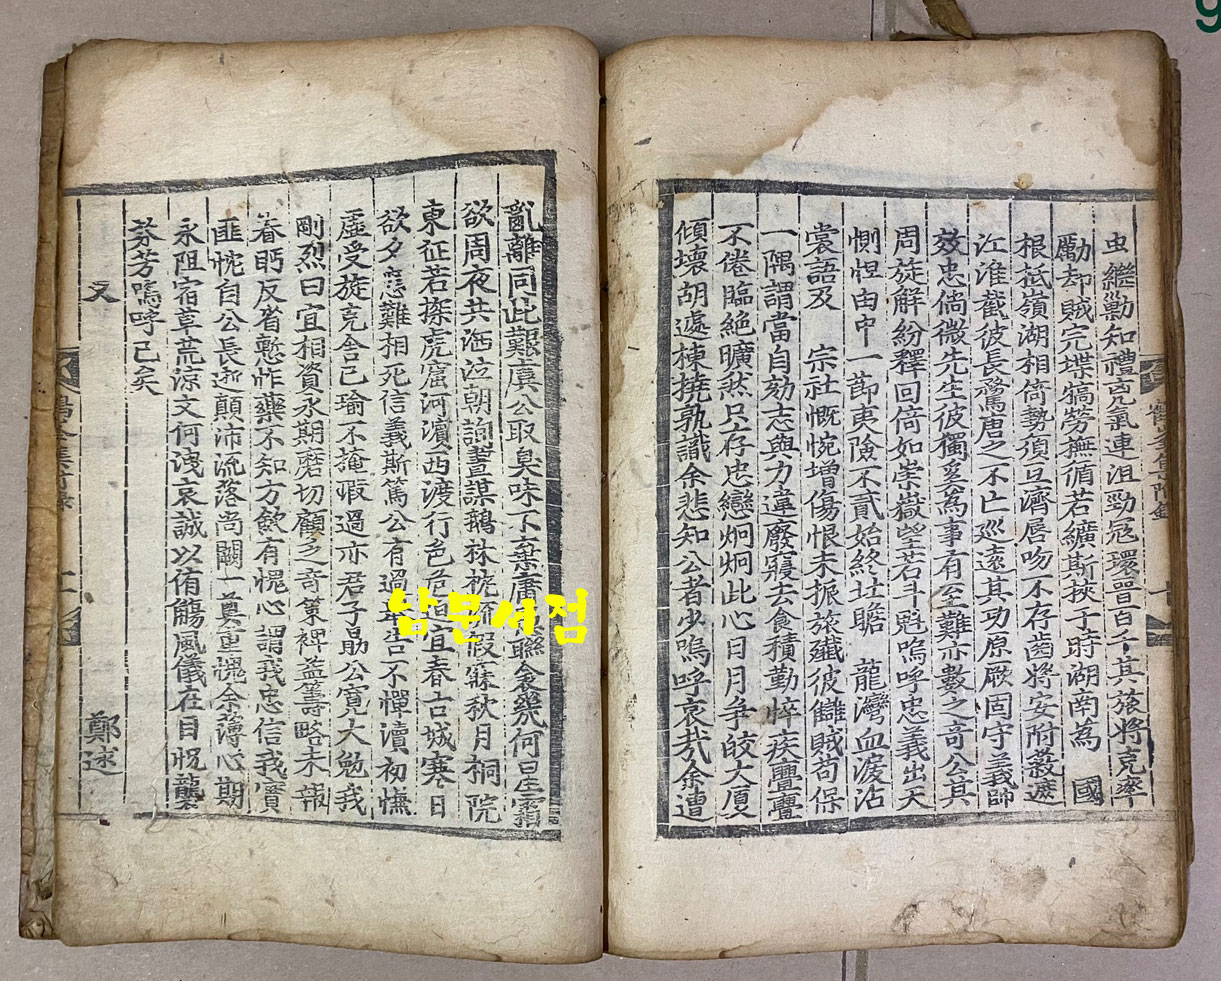 虫繼勦知禮克氣連沮勁冦環晋百千其旅將克率
勵却賊完堞犒勞撫循若纊斯挾于時湖南為 國
根柢嶺湖相倚勢須旦濟唇吻不存齒將安附蔽遮
江淮截彼長驚唐之不亡巡遠其功原厥固守義師
效忠倘微先生彼獨奚為事有至難亦數之奇公其
周旋解紛釋回倚如崇嶽望若斗魁嗚呼忠義出天
惻怛由中一節夷險不貳始終壯瞻 龍灣血淚沾
裳語及 宗社慨惋增傷恨未振旅殲彼讎賊苟保
一隅謂當自効志與力違廢寢去食積勤悴疾亹亹
不倦臨絶曠烝只存忠戀炯炯此心日月爭皎大厦
傾壞胡遽棟撓孰識余悲知公者少嗚呼哀哉余遭
亂離同此艱虞公取臭味不棄庸 聯衾幾何曰星霜
欲周夜共洒泣朝詢晝謀鵝林枕 假寐秋月桐院
東征若探虎窟河濱西渡行色危 宜春古城寒日
欲夕悲難相死信義斯篤公有過 告不憚瀆初憮
虛受旋克舍己瑜不掩瑕過亦君子勗公寬大勉我
剛烈曰宜相資永期磨切顧之奇策裨益籌略未報
眷眄反省慙怍藥不知方飮有愧心謂我忠信我實
匪忱自公長逝顛沛流落尚闕一奠重愧余薄心期
永阻宿草荒涼文何洩哀誠以侑觴風儀在目怳襲
芬芳嗚呼已矣
又 鄭逑
남문서점
9